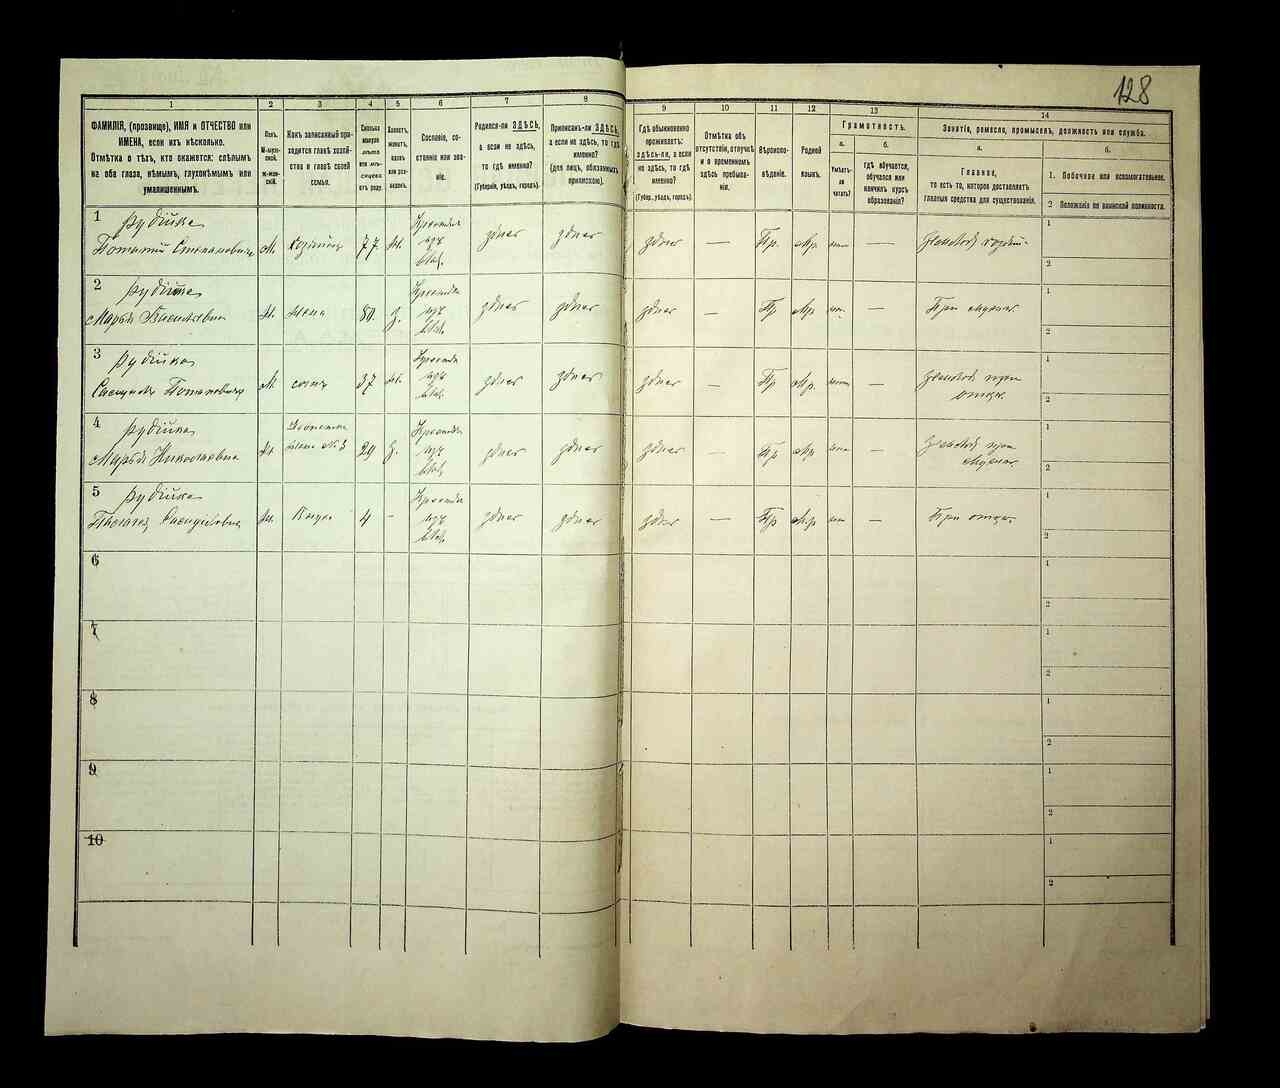 128
1 2 3 4 5 6 7 8 9 10 11 12 13 14
ФАМИЛІЯ, (прозвище), ИМЯ и ОТЧЕСТВО или
ИМЕНА, если ихъ нѣсколько.
Отмѣтка о тѣхъ, кто окажется: слѣпымъ
на оба глаза, нѣмымъ, глухонѣмымъ или
умалишеннымъ.
Полъ.
М-мужской.
Ж-женскій.
Какъ записанный приходится
главѣ хозяйства
и главѣ своей
семьи.
Сколько
минуло
лѣтъ
или мѣсяцевъ
отъ роду.
Холостъ,
женатъ,
вдовъ
или разведенъ.
Сословіе, состояніе
или званіе.
Родился-ли ЗДѢСЬ,
а если не здѣсь,
то гдѣ именно?
(Губернія, уѣздъ, городъ).
Приписанъ-ли ЗДѢСЬ,
а если не здѣсь, то гдѣ
именно?
(для лицъ, обязанныхъ
припискою).
Гдѣ обыкновенно
проживаетъ:
здѣсь-ли, а если
не здѣсь, то гдѣ
именно?
(Губер., уѣздъ, городъ).
Отмѣтка объ
отсутствіи, отлучкѣ
и о временномъ
здѣсь пребываніи.
Вѣроисповѣданіе.
Родной
языкъ.
Грамотность.
а.
Умѣетъ-ли
читать?
б.
гдѣ обучается,
обучался или
кончилъ курсъ
образованія?
Занятіе, ремесло, промыселъ, должность или служба.
а.
Главное,
то есть то, которое доставляетъ
главныя средства для существованія.
б.
1. Побочное или вспомогательное.
2 Положеніе по воинской повинности.
1 Рудійка
Степановичъ М 77 ж. здѣсь здѣсь здѣсь — Пр. Мр. —
1
2
2 Рудійка
Марья Васильевна ж. жена з. здѣсь здѣсь здѣсь — Пр Мр — При мужѣ.
1
2
3 Рудійка
Потаповичъ М сынъ 37 ж. здѣсь здѣсь здѣсь — Пр Мр. — при отцѣ.
1
2
4 Рудійка
Марья Николаевна ж. жена № 3 29 з. здѣсь здѣсь здѣсь — Пр Мр — при мужѣ.
1
2
5 Рудійка
ж. 4 - здѣсь здѣсь здѣсь — Пр Мр — При отцѣ.
1
2
6
1
2
7
1
2
8
1
2
9
1
2
10
1
2